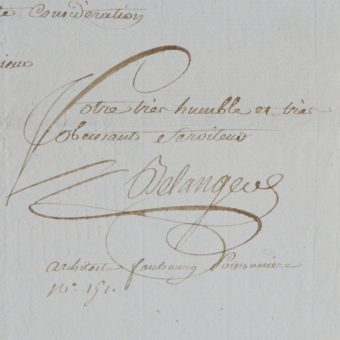 te Consideration
sieur
Votre très humble et très
obeissant Serviteur
Belanger
architecte faubourg Poissonniere
N.º 151.